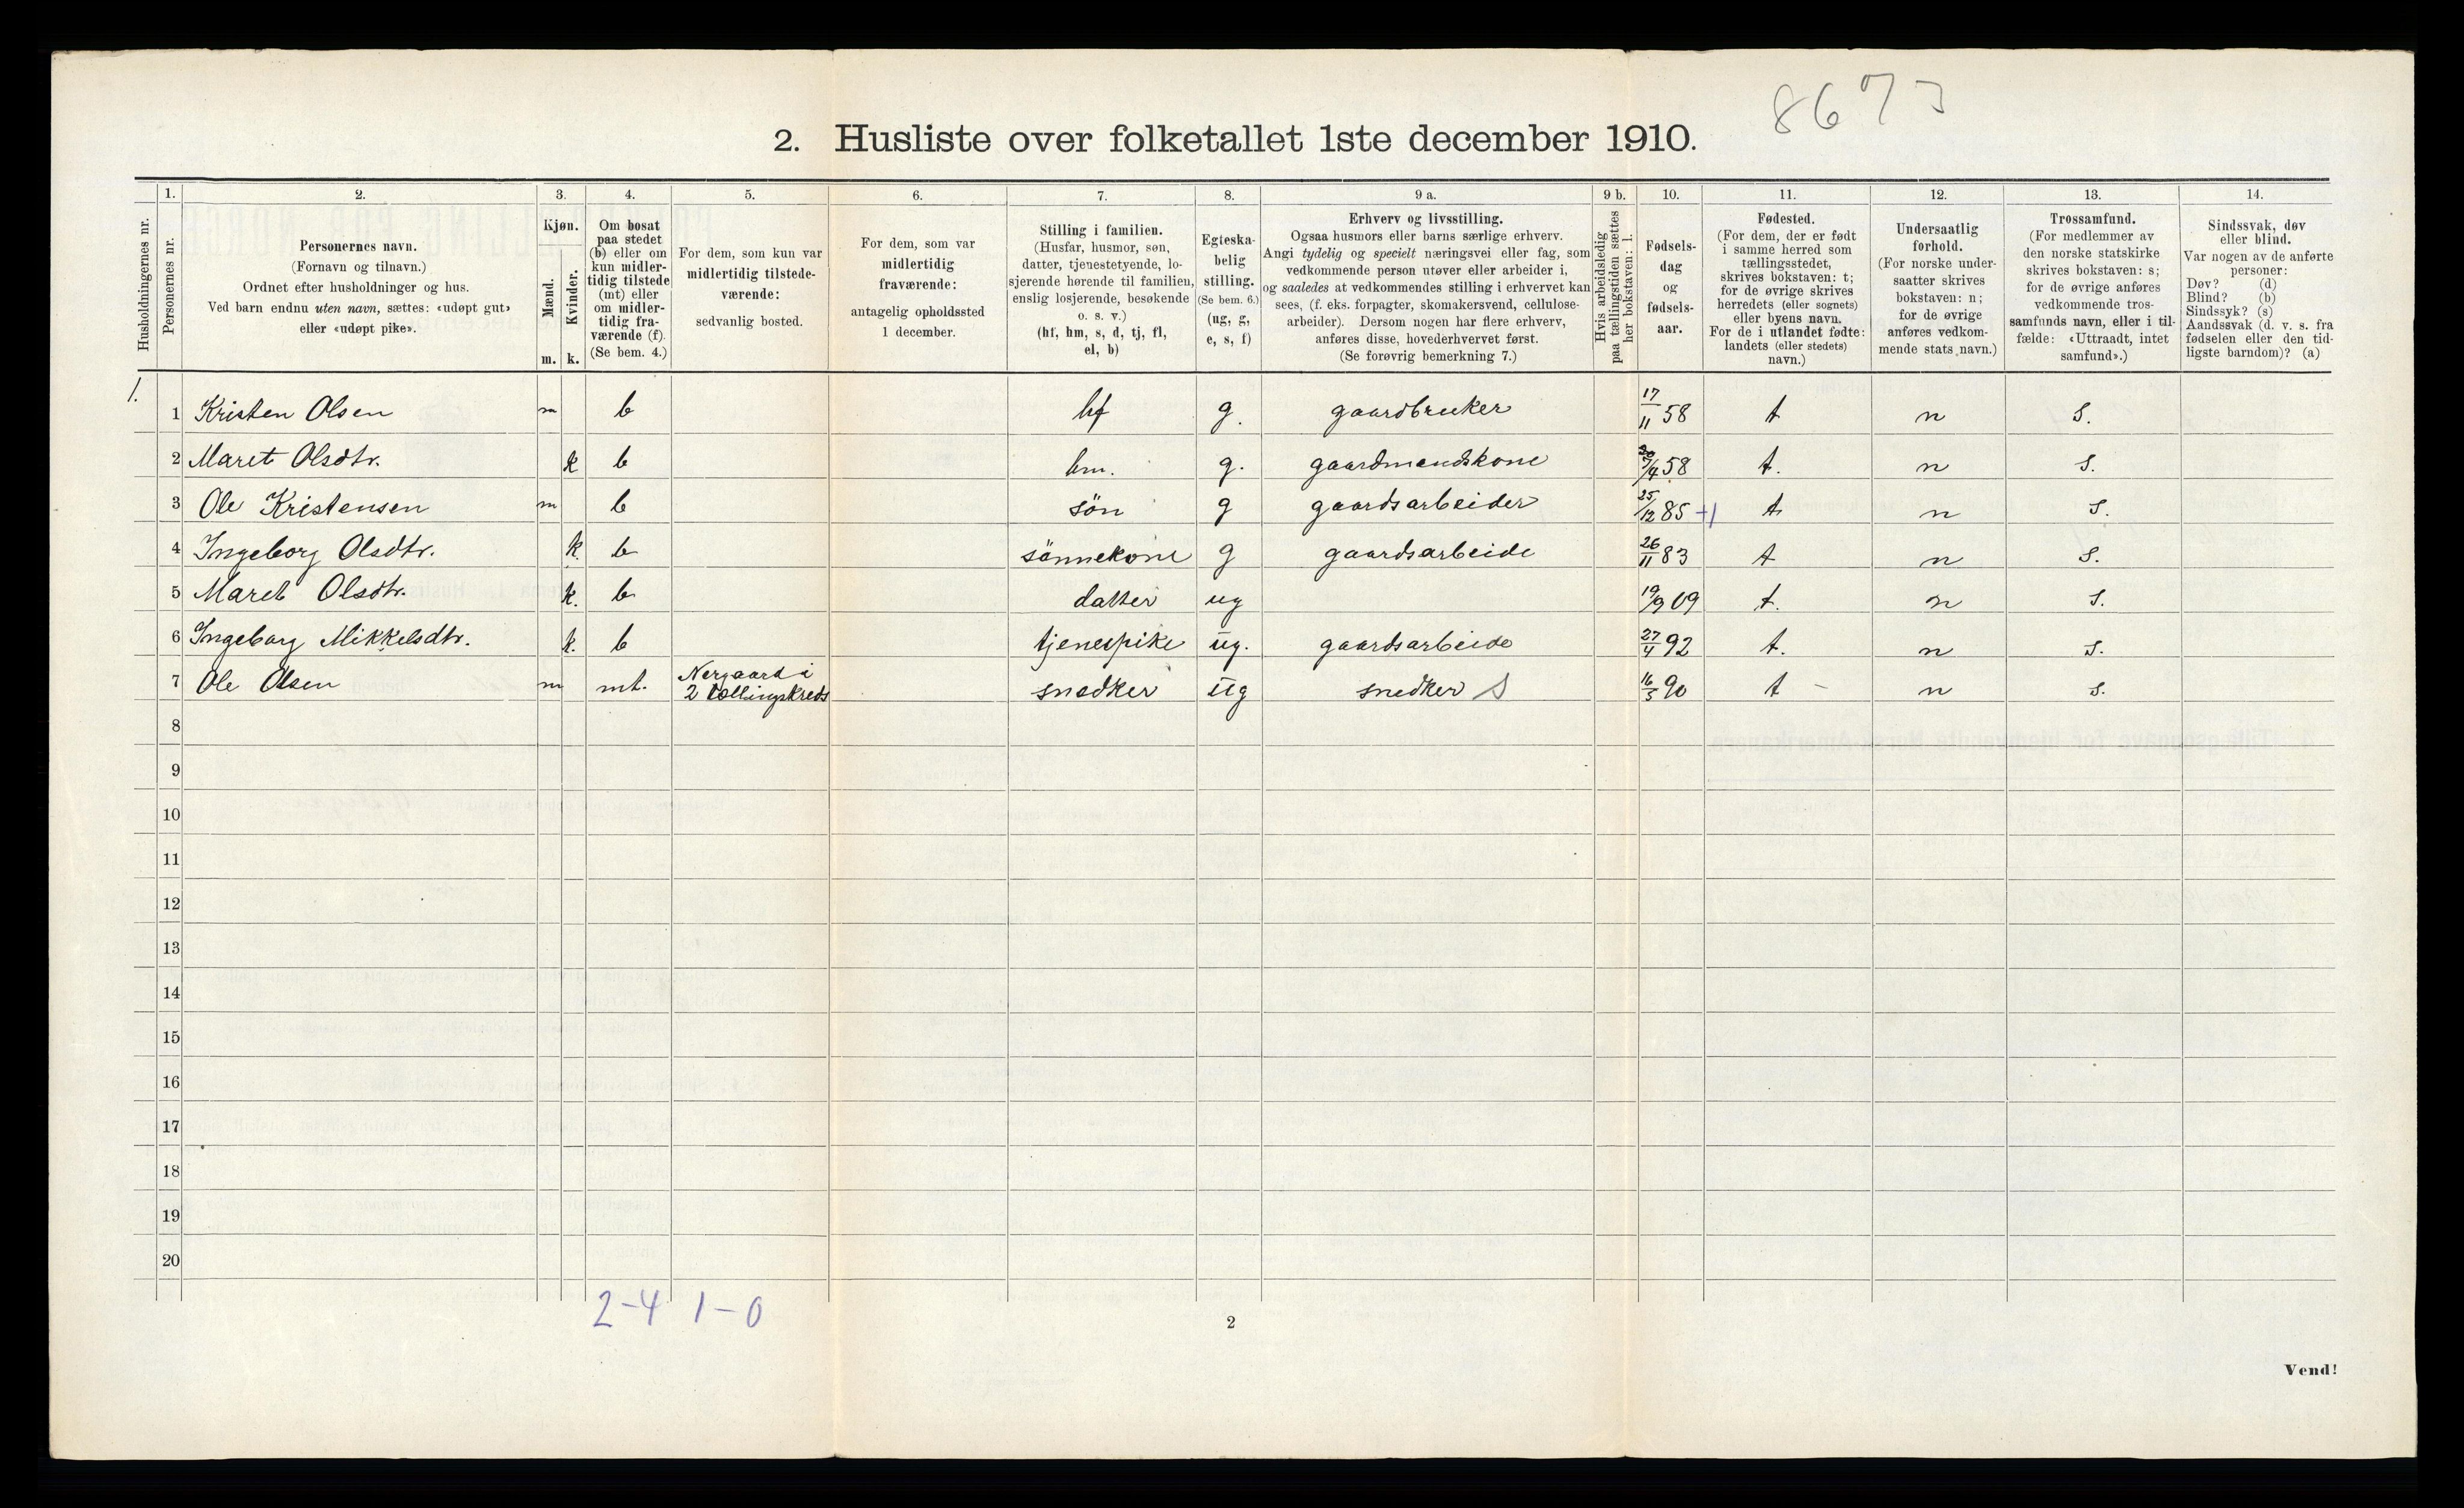 8673
2. Husliste over folketallet 1ste december 1910.
Husholdningernes nr.
1.
Personernes nr.
2.
Personernes navn.
(Fornavn og tilnavn.)
Ordnet efter husholdninger og hus.
Ved barn endnu uten navn, sættes: «udøpt gut»
eller «udøpt pike».
3.
Kjøn.
Mænd.
Kvinder.
m. k.
4.
Om bosat
paa stedet
(b) eller om
kun midler-
tidig tilstede
(mt) eller
om midler-
tidig fra-
værende (f).
(Se bem. 4.)
5.
For dem, som kun var
midlertidig tilstede-
værende:
sedvanlig bosted.
6.
For dem, som var
midlertidig
fraværende:
antagelig opholdssted
1 december.
7.
Stilling i familien.
(Husfar, husmor, søn,
datter, tjenestetyende, lo-
sjerende hørende til familien,
enslig losjerende, besøkende
o. s. v.)
(hf, hm, s, d, tj, fl,
el, b)
8.
Egteska-
belig
stilling.
(Se bem. 6.)
(ug, g,
e, s, f)
9 a.
Erhverv og livsstilling.
Ogsaa husmors eller barns særlige erhverv.
Angi tydelig og specielt næringsvei eller fag, som
vedkommende person utøver eller arbeider i,
og saaledes at vedkommendes stilling i erhvervet kan
sees, (f. eks. forpagter, skomakersvend, cellulose-
arbeider). Dersom nogen har flere erhverv,
anføres disse, hovederhvervet først.
(Se forøvrig bemerkning 7.)
9 b.
Hvis arbeidsledig
paa tællingstiden sættes
her bokstaven: l.
10.
Fødsels-
dag
og
fødsels-
aar.
11.
Fødested.
(For dem, der er født
i samme herred som
tællingsstedet,
skrives bokstaven: t;
for de øvrige skrives
herredets (eller sognets)
eller byens navn.
For de i utlandet fødte:
landets (eller stedets)
navn.)
12.
Undersaatlig
forhold.
(For norske under-
saatter skrives
bokstaven: n;
for de øvrige
anføres vedkom-
mende stats navn.)
13.
Trossamfund.
(For medlemmer av
den norske statskirke
skrives bokstaven: s;
for de øvrige anføres
vedkommende tros-
samfunds navn, eller i til-
fælde: «Uttraadt, intet
samfund».)
14.
Sindssvak, døv
eller blind.
Var nogen av de anførte
personer:
Døv? (d)
Blind? (b)
Sindssyk? (s)
Aandssvak (d. v. s. fra
fødselen eller den tid-
ligste barndom)? (a)
1. 1 Kristen Olsen m b hf g. gaardbruker 17/11 58 t n S.
2 Maret Olsdtr. k b hm. g. gaardmandskone 58 t. n S.
3 Ole Kristensen m b sön g gaardsarbeider 25/12 85 +1 t n S.
4 Ingeborg Olsdtr. k. b sönnekone g gaardsarbeide 26/11 83 t n S.
5 Maret Olsdtr. k. b datter ug 19/9 09 t. n S.
6 Ingeborg Mikkelsdtr. k. b tjenespike ug. gaardsarbeide 27/4 92 t. n S.
7 Ole Olsen m mt. Nergaard i 2 tællingskreds snedker ug snedker S 16/5 90 t - n S.
8
9
10
11
12
13
14
15
16
17
18
19
20
2-4 1-0
2
Vend!